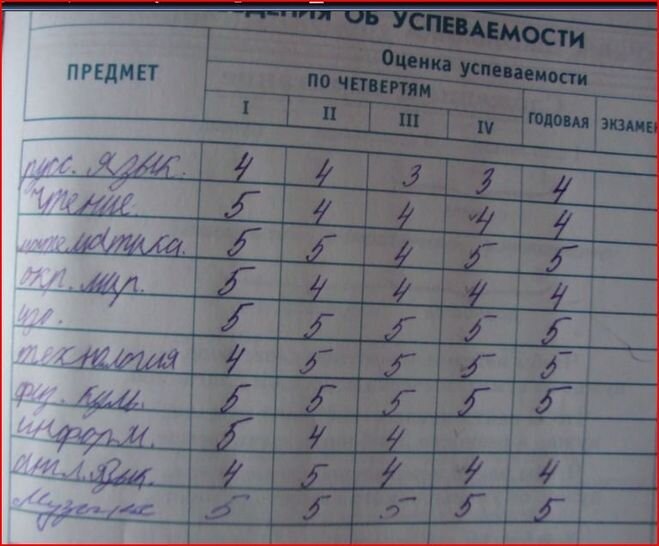 ДЕНИЯ ОБ УСПЕВАЕМОСТИ
ПРЕДМЕТ
Оценка успеваемости
ПО ЧЕТВЕРТЯМ
I II III IV ГОДОВАЯ ЭКЗАМЕН
русс. язык. 4 4 3 3 4
Чтение. 5 4 4 4 4
математика. 5 5 4 5 5
окр. мир. 5 4 4 4 4
изо. 5 5 5 5 5
технология 4 5 5 5 5
физ. куль. 5 5 5 5 5
информ. 5 4 4
англ. язык. 4 5 4 4 4
Музыка 5 5 5 5 5